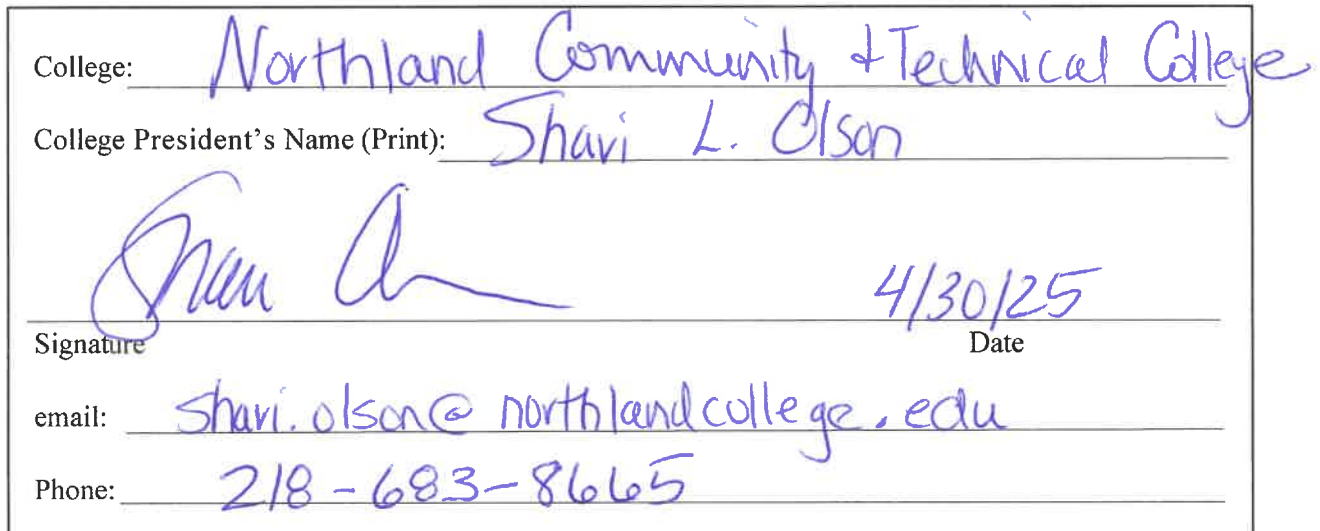 College: Northland Community + Technical College
College President's Name (Print): Shari L. Olson
4/30/25
Signature Date
email: shari.olson@northlandcollege.edu
Phone: 218-683-8665